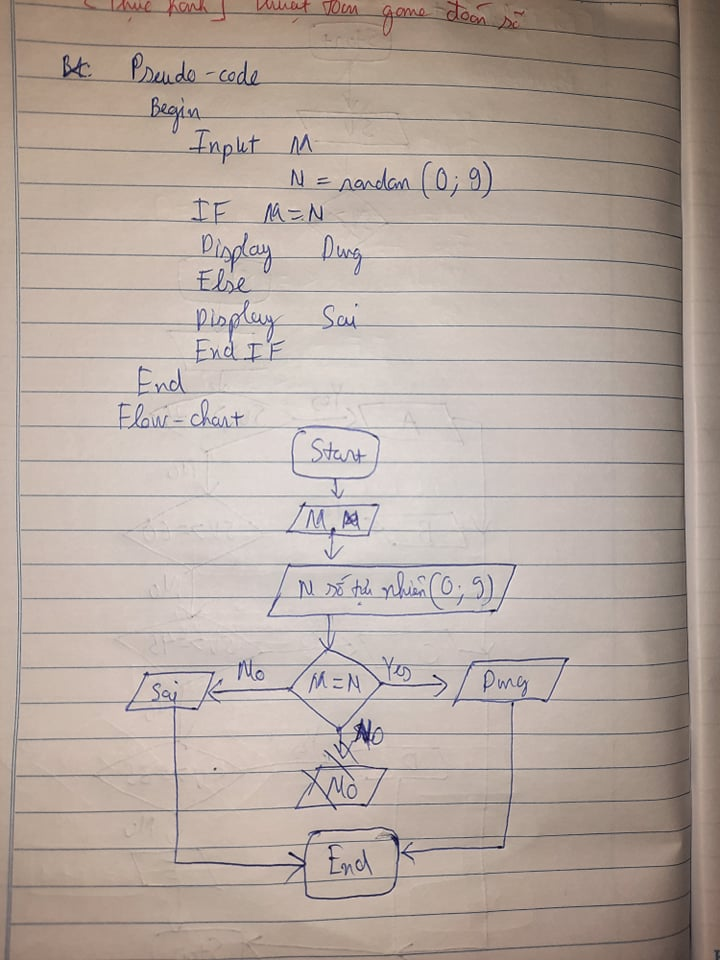 [Thực hành] thuật toán game đoán số
Pseudo-code
Begin
Input M
N = random (0; 9)
IF M = N
Display Đúng
Else
Display Sai
End IF
End
Flow-chart
Start
M
N số tự nhiên (0; 9)
M = N
No
Yes
Sai
Đúng
No
No
End